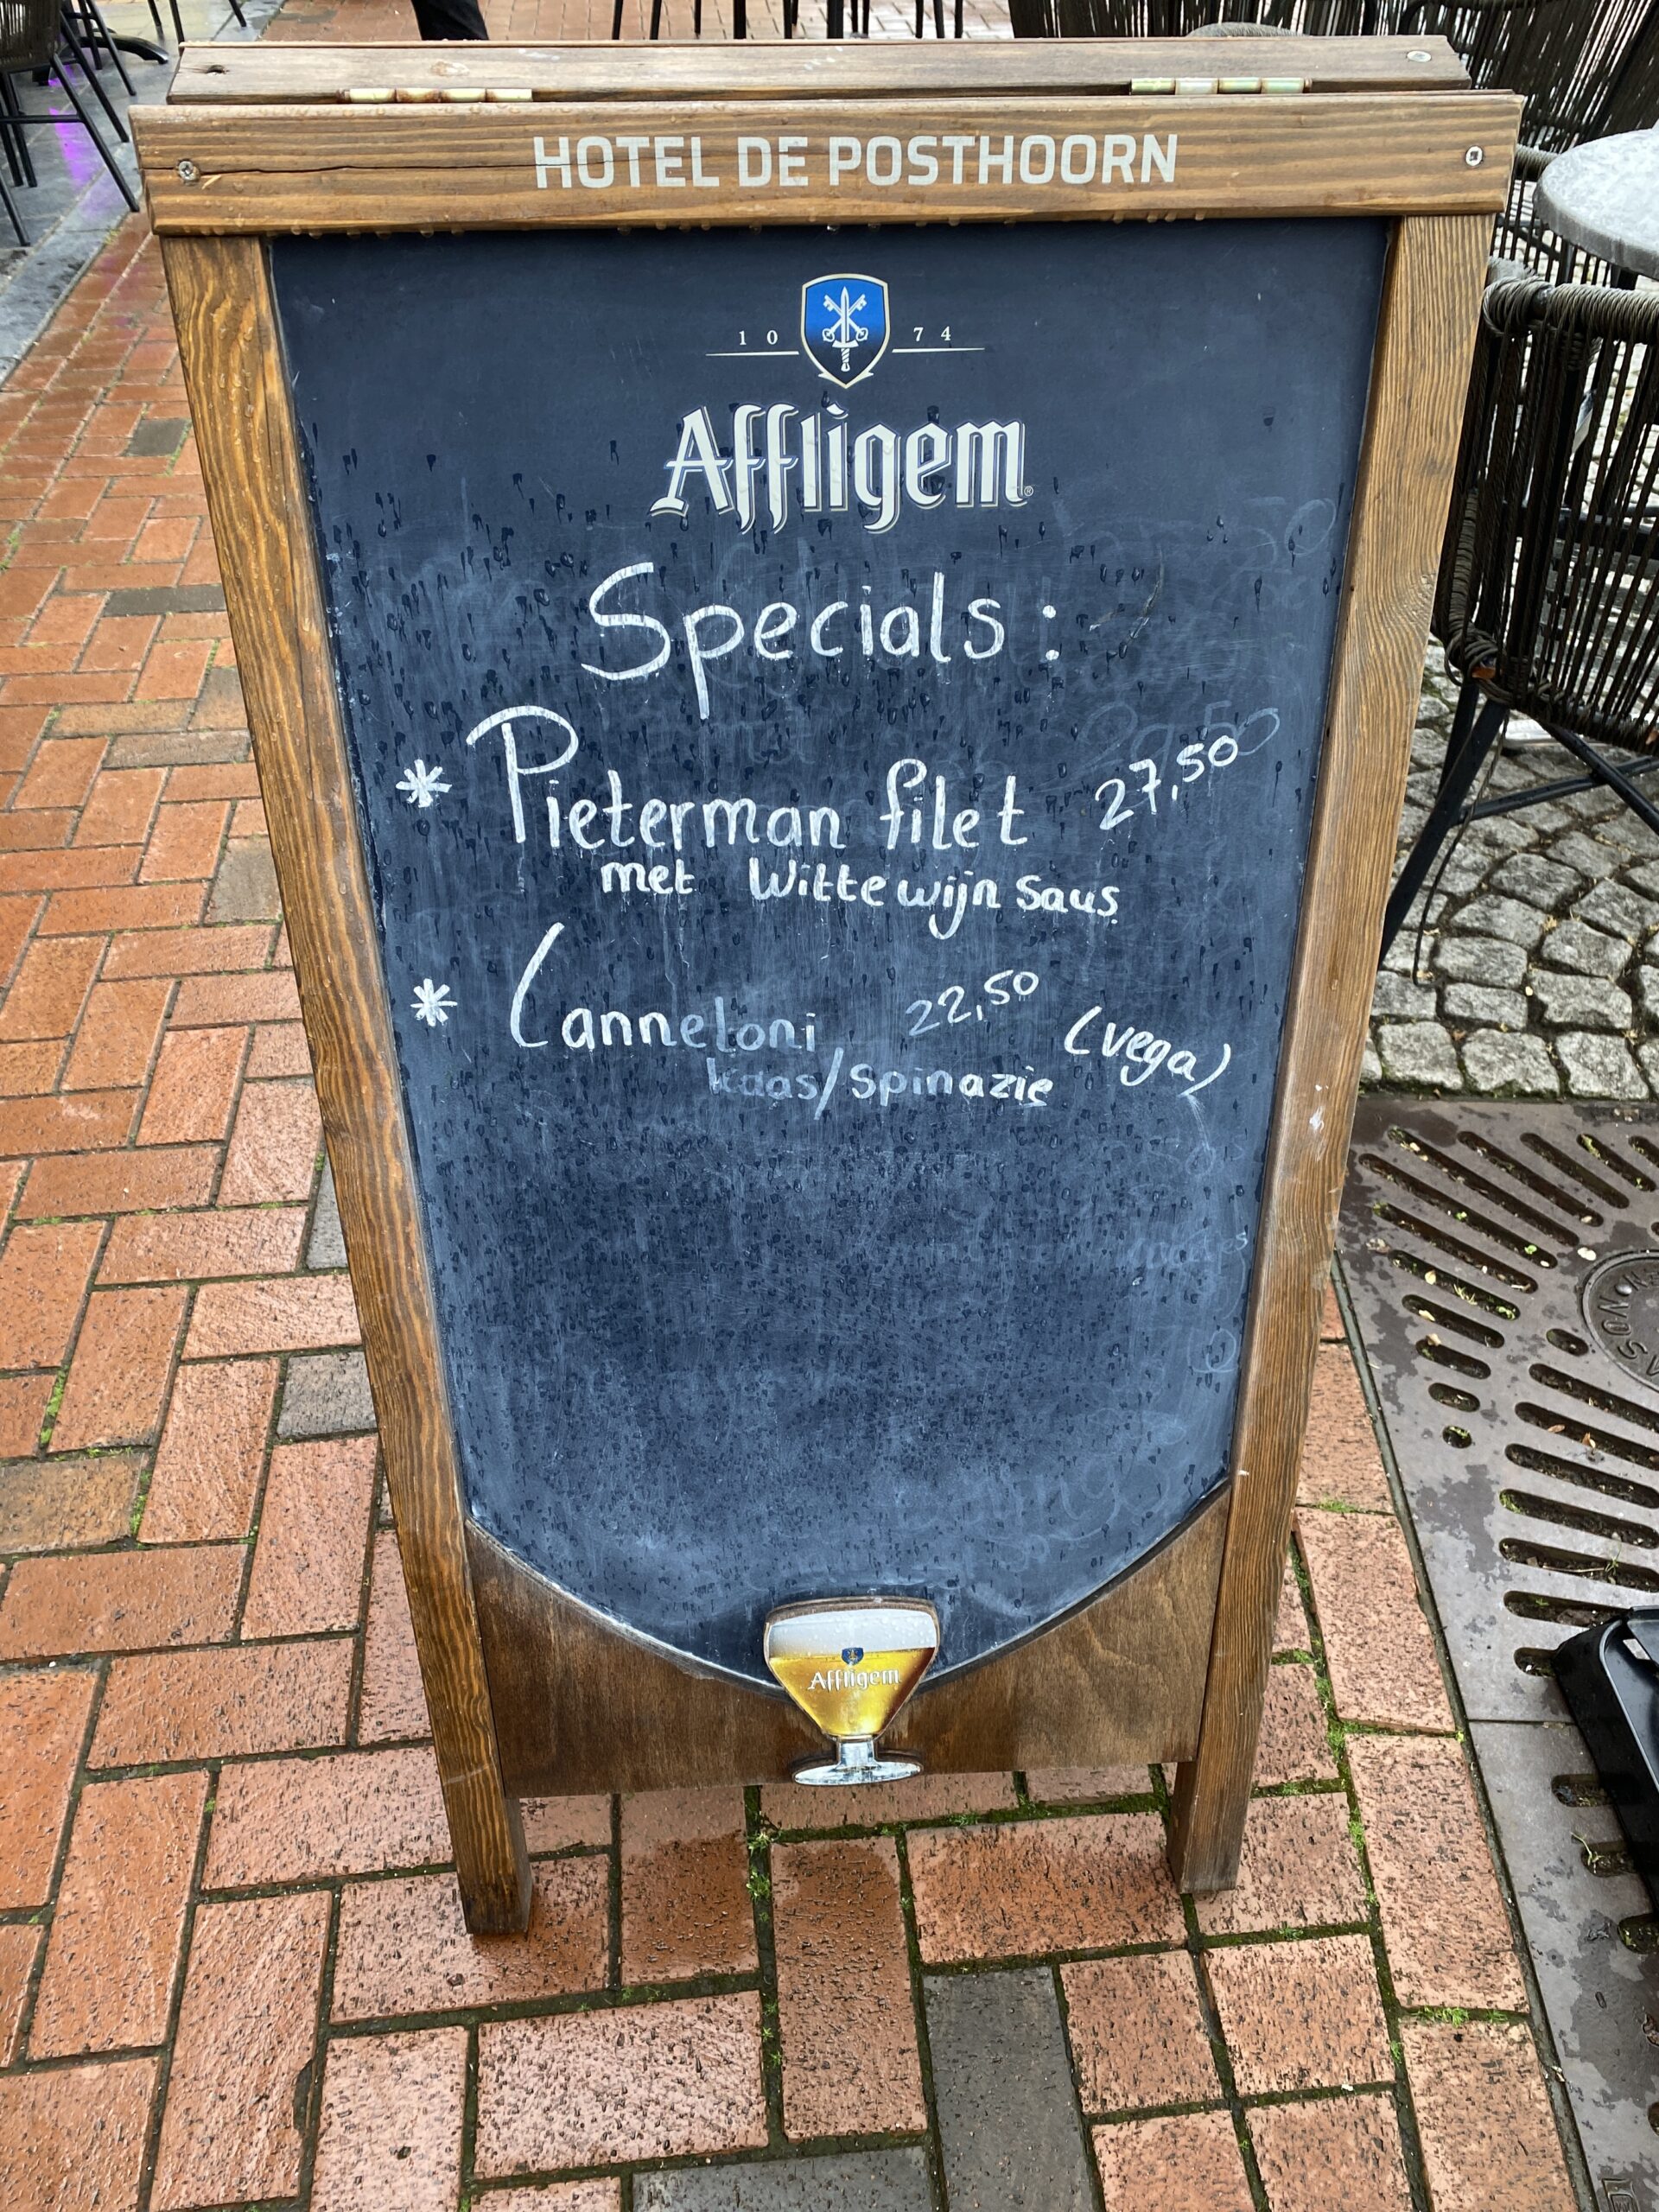 HOTEL DE POSTHOORN
10 74
Affligem
Specials:
* Pieterman filet 27,50
met Witte wijn saus
* Canneloni 22,50 (vega)
kaas/spinazie
Affligem